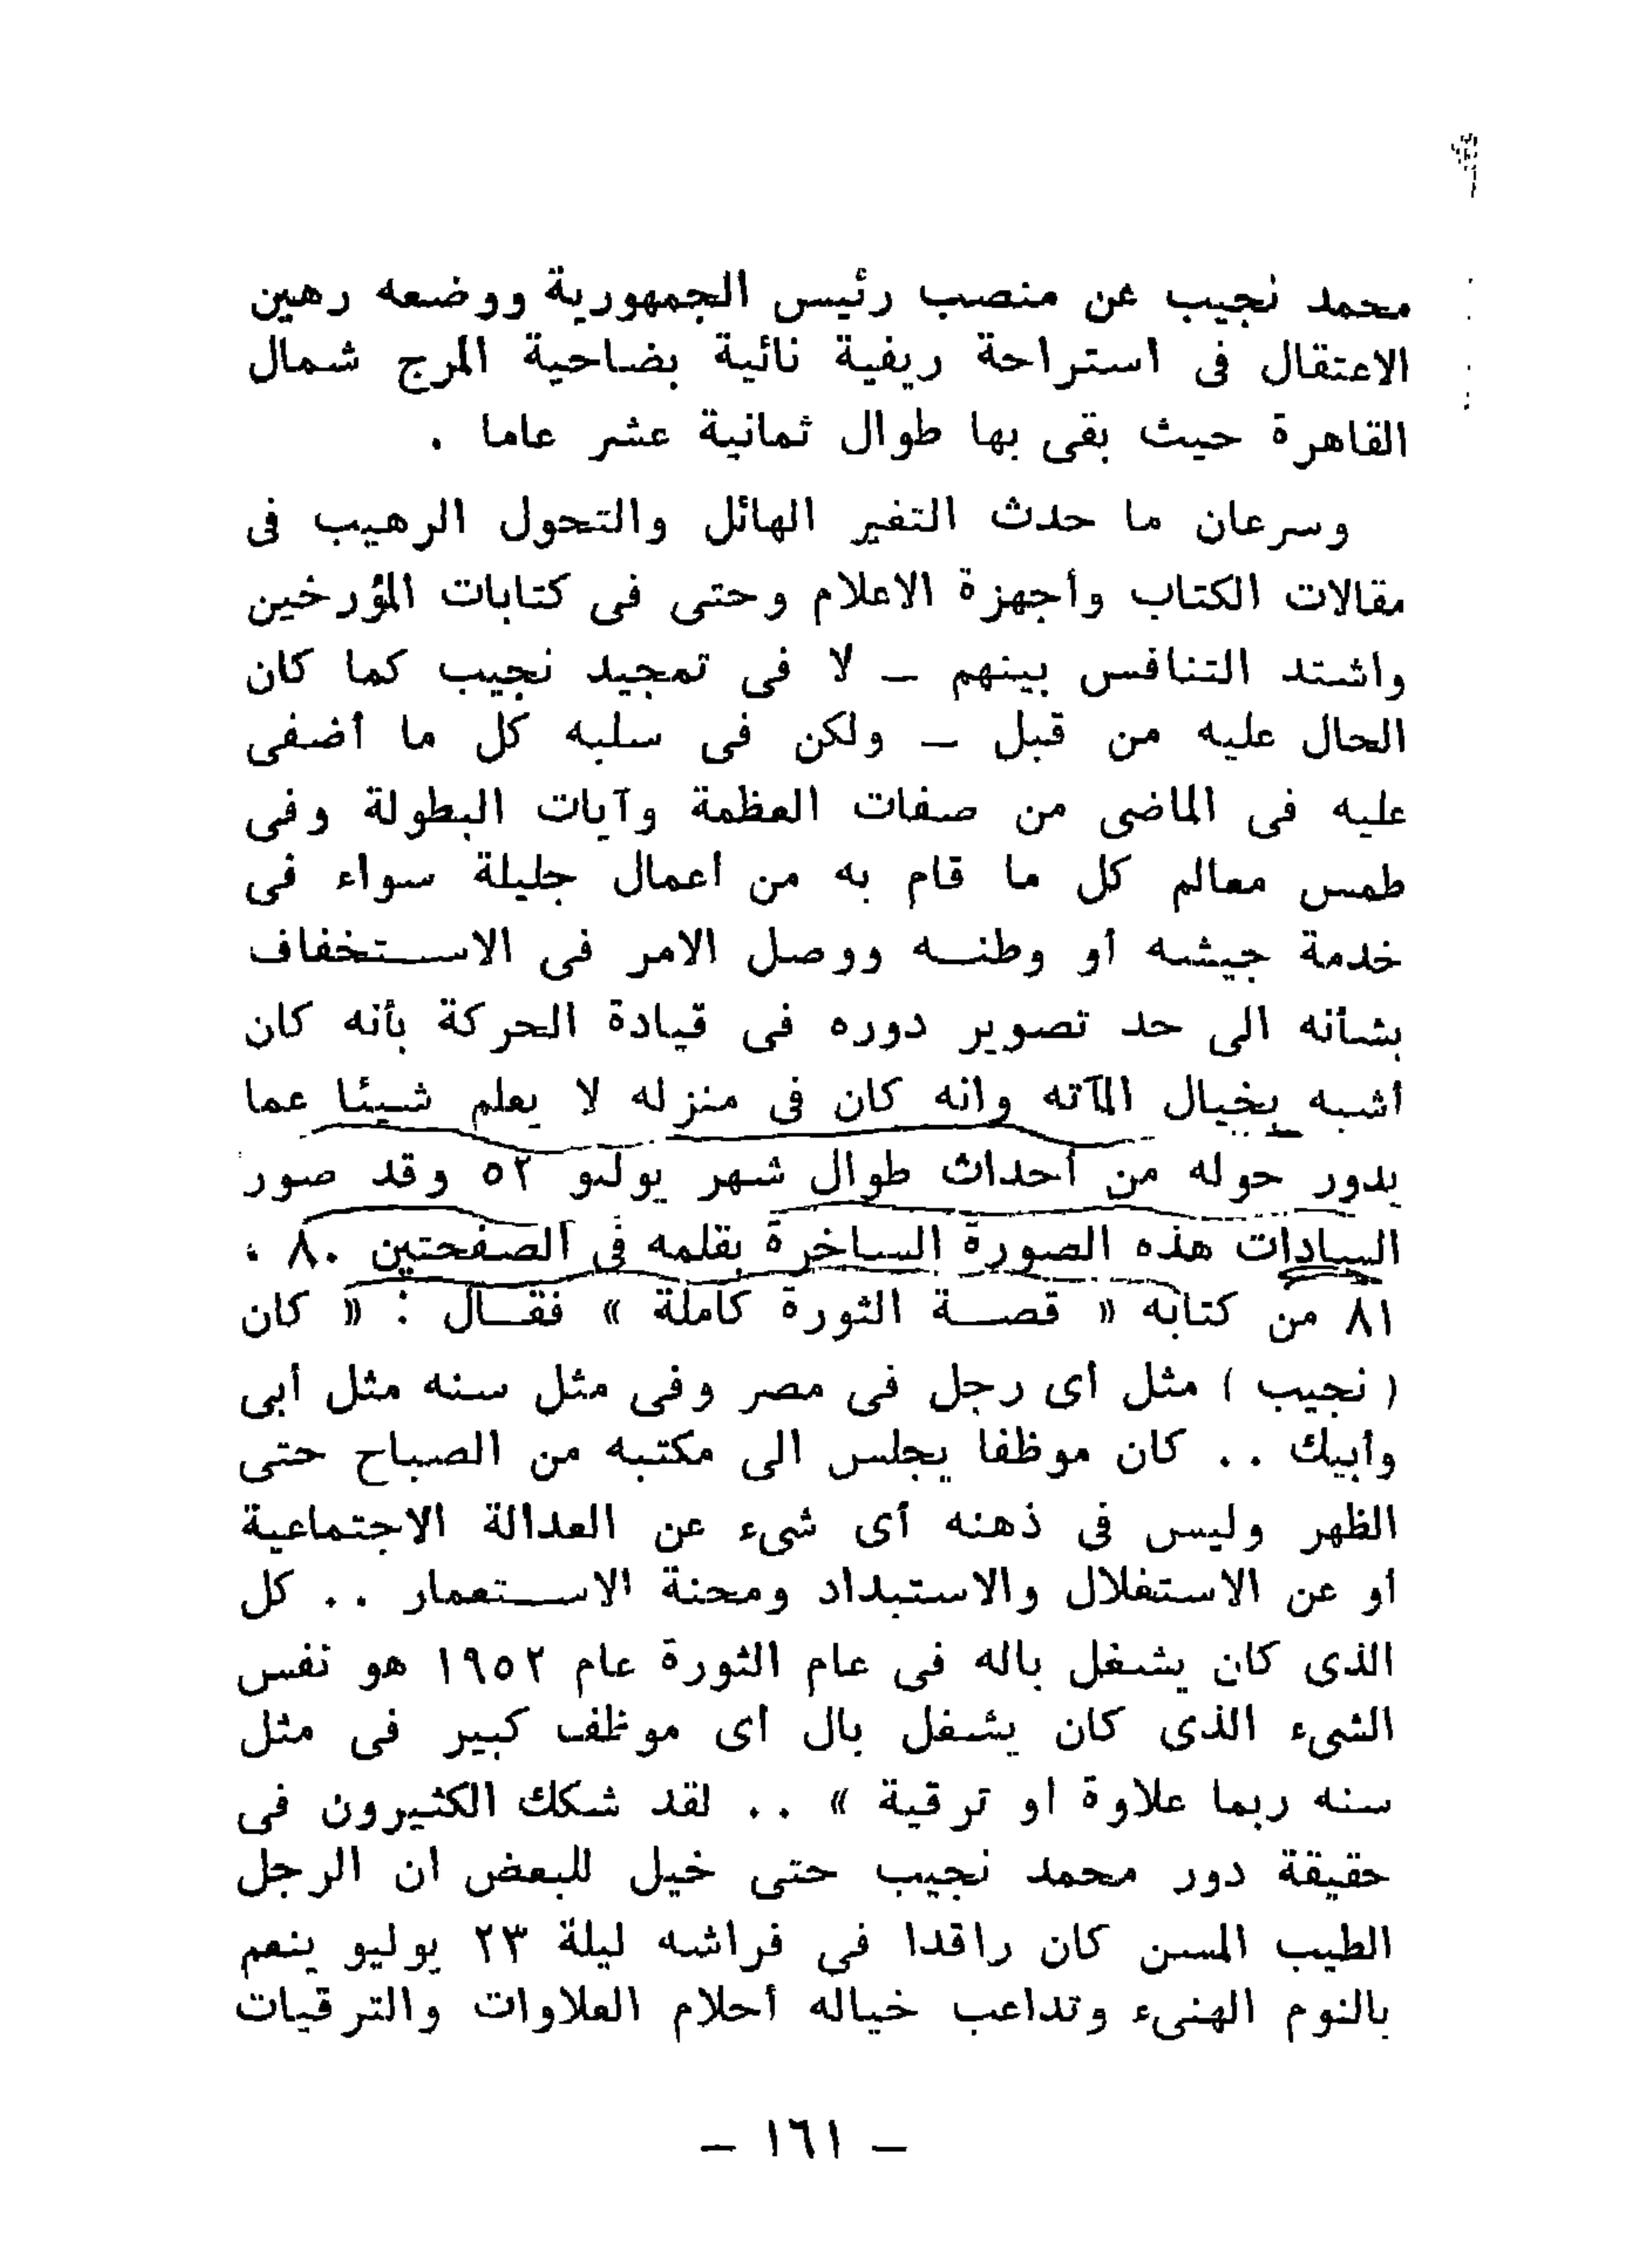 محمد نجيب عن منصب رئيس الجمهورية ووضعه رهين
الاعتقال فى استراحة ريفية نائية بضاحية المرج شمال
القاهرة حيث بقى بها طوال ثمانية عشر عاما .
وسرعان ما حدث التغير الهائل والتحول الرهيب فى
مقالات الكتاب وأجهزة الاعلام وحتى فى كتابات المؤرخين
واشتد التنافس بينهم – لا فى تمجيد نجيب كما كان
الحال عليه من قبل – ولكن فى سلبه كل ما أضفى
عليه فى الماضى من صفات العظمة وآيات البطولة وفى
طمس معالم كل ما قام به من اعمال جليلة سواء فى
خدمة جيشه أو وطنه ووصل الامر فى الاستخفاف
بشأنه الى حد تصوير دوره فى قيادة الحركة بأنه كان
اشبه بخيال المآته وانه كان فى منزله لا يعلم شيئا عما
يدور حوله من أحداث طوال شهر يوليو ٥٢ وقد صور
السادات هذه الصورة الساخرة بقلمه فى الصفحتين ٨٠ ،
٨١ من كتابه « قصة الثورة كاملة » فقال : « كان
( نجيب ) مثل أى رجل فى مصر وفى مثل سنه مثل أبى
وأبيك . . كان موظفا يجلس الى مكتبه من الصباح حتى
الظهر وليس فى ذهنه أى شىء عن العدالة الاجتماعية
أو عن الاستغلال والاستبداد ومحنة الاستعمار . . كل
الذى كان يشغل باله فى عام الثورة عام ١٩٥٢ هو نفس
الشىء الذى كان يشغل بال اى موظف كبير فى مثل
سنه ربما علاوة او ترقية » . . لقد شكك الكثيرون فى
حقيقة دور محمد نجيب حتى خيل للبعض ان الرجل
الطيب المسن كان راقدا فى فراشه ليلة ٢٣ يوليو ينعم
بالنوم الهنىء وتداعب خياله أحلام العلاوات والترقيات
– ١٦١ –